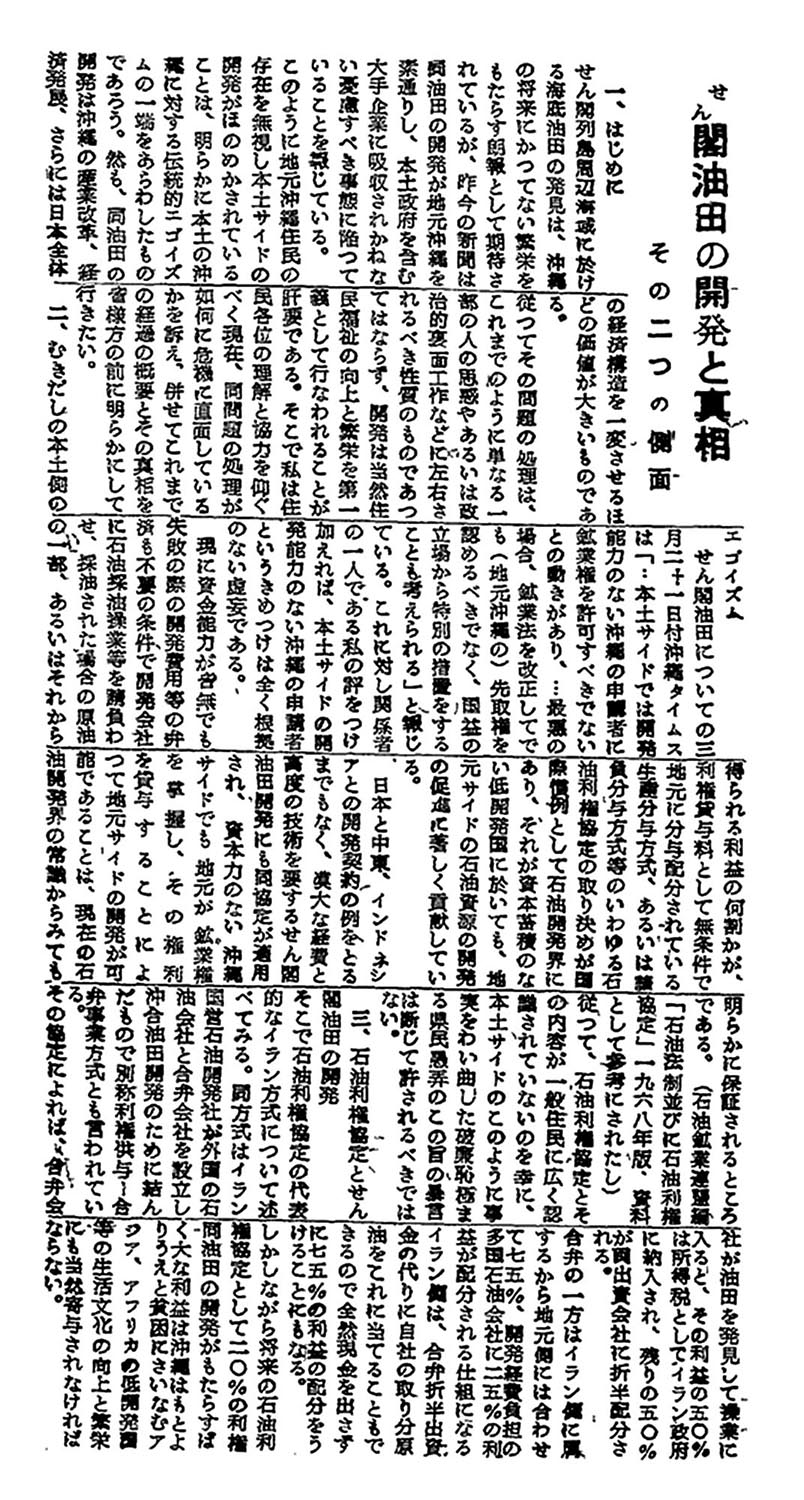 せん閣油田の開発と真相
その二つの側面
一、はじめに
せん閣列島周辺海域に於け
る海底油田の発見は、沖縄
の将来にかつてない繁栄を
もたらす朗報として期待さ
れているが、昨今の新聞は
同油田の開発が地元沖縄を
素通りし、本土政府を含む
大手企業に吸収されかねな
い憂慮すべき事態に陥つて
いることを報じている。
このように地元沖縄住民の
存在を無視し本土サイドの
開発がほのめかされている
ことは、明らかに本土の沖
縄に対する伝統的エゴイズ
ムの一端をあらわしたもの
であろう。然も、同油田の
開発は沖縄の産業改革、経
済発展、さらには日本全体
の経済構造を一変させるほ
どの価値が大きいものであ
る。
従つてその問題の処理は、
これまでのように単なる一
部の人の思惑やあるいは政
治的裏面工作などに左右さ
れるべき性質のものであつ
てはならず、開発は当然住
民福祉の向上と繁栄を第一
義として行なわれることが
肝要である。そこで私は住
民各位の理解と協力を仰ぐ
べく現在、同問題の処理が
如何に危機に直面している
かを訴え、併せてこれまで
の経過の概要とその真相を
皆様方の前に明らかにして
行きたい。
二、むきだしの本土側の
エゴイズム
せん閣油田についての三
月二十一日付沖縄タイムス
は「…本土サイドでは開発
能力のない沖縄の申請者に
鉱業権を許可すべきでない
との動きがあり、…最悪の
場合、鉱業法を改正してで
も(地元沖縄の)先取権を
認めるべきでなく、国益の
立場から特別の措置をする
ことも考えられる」と報じ
ている。これに対し関係者
の一人である私の評をつけ
加えれば、本土サイドの開
発能力のない沖縄の申請者
というきめつけは全く根拠
のない虚妄である。
現に資金能力が皆無でも
失敗の際の開発費用等の弁
済も不要の条件で開発会社
に石油採油操業等を請負わ
せ、採油された場合の原油
の一部、あるいはそれから
得られる利益の何割かが、
利権貸与料として無条件で
地元に分与配分されている
生産分与方式、あるいは請
負分与方式等のいわゆる石
油利権協定の取り決めが国
際慣例として石油開発界に
あり、それが資本蓄積のな
い低開発国に於いても、地
元サイドの石油資源の開発
の促進に著しく貢献してい
る。
日本と中東、インドネシ
アとの開発契約の例をとる
までもなく、莫大な経費と
高度の技術を要するせん閣
油田開発にも同協定が適用
され、資本力のない沖縄
サイドでも地元が鉱業権
を掌握し、その権利
を貸与することによ
つて地元サイドの開発が可
能であることは、現在の石
油開発界の常識からみても
明らかに保証されるところ
である。(石油鉱業連盟編
「石油法制並びに石油利権
協定」一九六八年版、資料
として参考にされたし)
従つて、石油利権協定とそ
の内容が一般住民に広く認
識されていないのを幸に、
本土サイドのこのように事
実をわい曲した破廉恥極ま
る県民愚弄のこの旨の暴言
は断じて許されるべきでは
ない。
三、石油利権協定とせん
閣油田の開発
そこで石油利権協定の代表
的なイラン方式について述
べてみる。同方式はイラン
国営石油開発社が外国の石
油会社と合弁会社を設立し
沖合油田開発のために結ん
だもので別称利権供与ー合
弁事業方式とも言われてい
る。
その協定によれば、合弁会
社が油田を発見して操業に
入ると、その利益の五〇%
は所得税としてイラン政府
に納入され、残りの五〇%
が両出資会社に折半配分さ
れる。
合弁の一方はイラン側に属
するから地元側には合わせ
て七五%、開発経費負担の
多国石油会社に二五%の利
益が配分される仕組になる
イラン側は、合弁折半出資
金の代りに自社の取り分原
油をこれに当てることもで
きるので全然現金を出さず
に七五%の利益の配分をう
けることにもなる。
しかしながら将来の石油利
権協定として二〇%の利権
同油田の開発がもたらすば
く大な利益は沖縄はもとよ
りうえと貧困にさいなむア
ジア、アフリカの低開発国
等の生活文化の向上と繁栄
にも当然寄与されなければ
ならない。